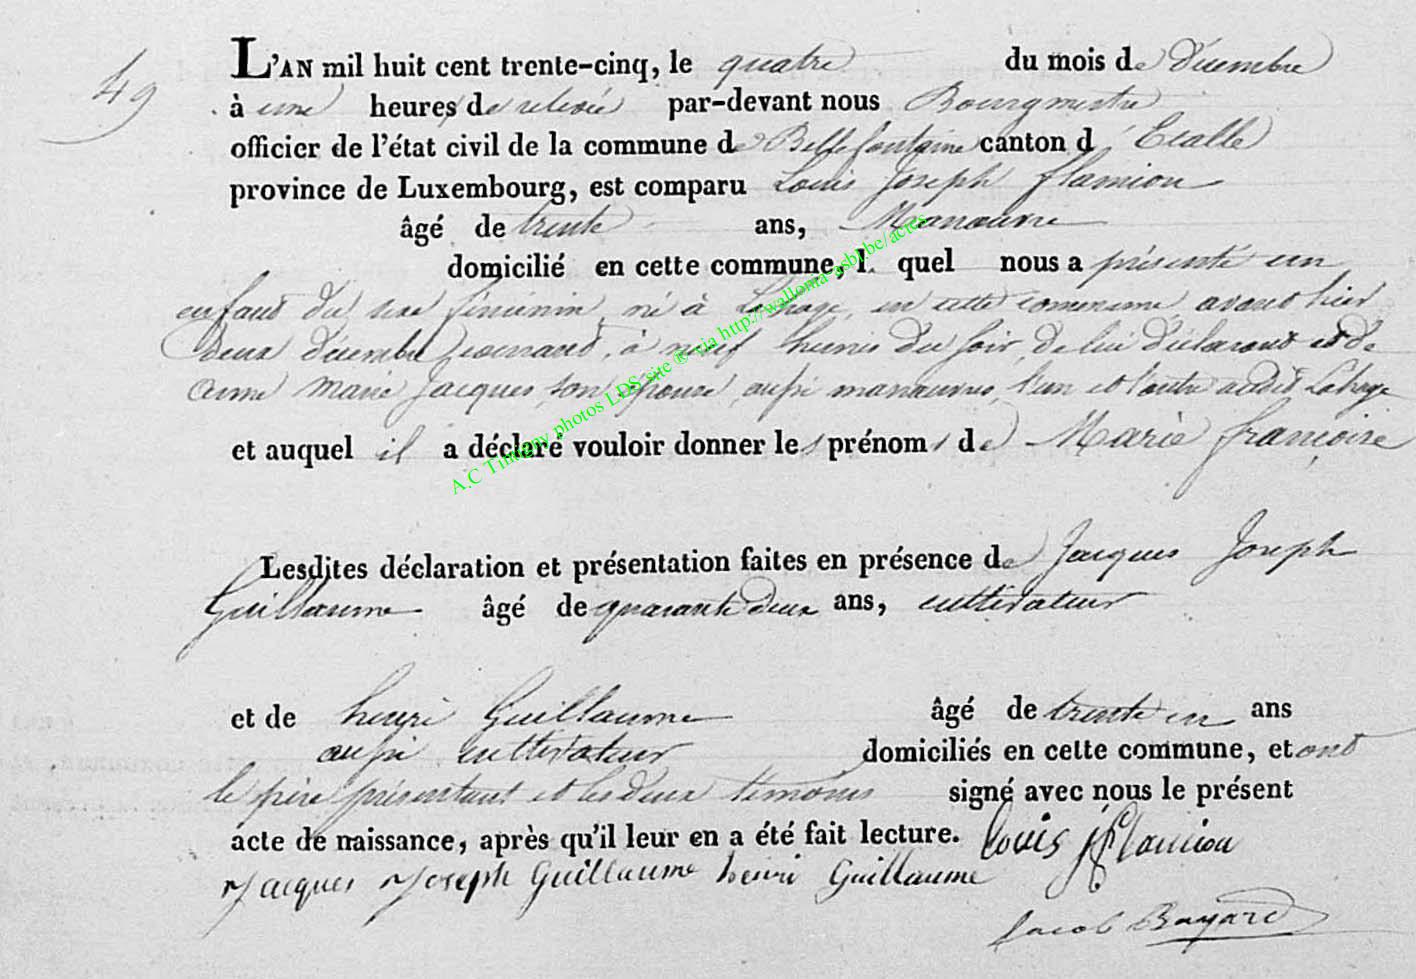 49
L'AN mil huit cent trente-cinq, le quatre du mois de décembre
à une heures de relevée par-devant nous Bourgmestre
officier de l'état civil de la commune de Bellefontaine canton d'Etalle
province de Luxembourg, est comparu Louis Joseph flamion
âgé de trente ans, Manœuvre
domicilié en cette commune, l quel nous a présenté un
enfant du sexe féminin, né à Lahage, en cette commune avant hier
deux décembre courant, à neuf heures du soir, de lui déclarant et de
anne marie Jacques, son épouse, aussi manœuvre, l'un et l'autre audit Lahage
et auquel il a déclaré vouloir donner les prénoms de Marie françoise
A.C Tintigny photos LDS site ® via http://wallonia-asbl.be/actes
Lesdites déclaration et présentation faites en présence de Jacques Joseph
Guillaume âgé de quarante deux ans, cultivateur
et de henri Guillaume âgé de trente un ans
aussi cultivateur domiciliés en cette commune, et ont
le père présentant et les deux témoins signé avec nous le présent
acte de naissance, après qu'il leur en a été fait lecture. louis j flamion
Jacques Joseph Guillaume henri Guillaume
Jacob Bayard